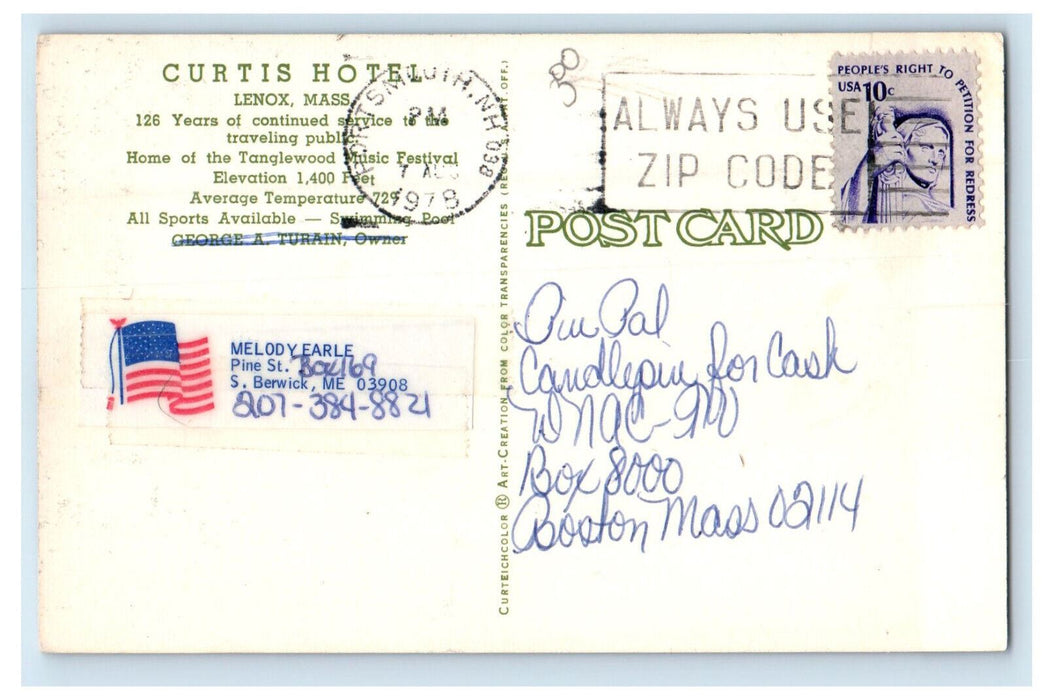 CURTIS HOTEL
LENOX, MASS.
126 Years of continued service to the
traveling public
Home of the Tanglewood Music Festival
Elevation 1,400 Feet
Average Temperature 72°
All Sports Available — Swimming Pool
GEORGE A. TURAIN, Owner
PORTSMOUTH, N.H. 038
PM
7 AUG
1978
300
ALWAYS USE
ZIP CODE
PEOPLE'S RIGHT TO PETITION FOR REDRESS
USA 10c
POST CARD
CURTEICHCOLOR ® ART-CREATION FROM COLOR TRANSPARENCIES (REG. U.S. PAT. OFF.)
MELODY EARLE
Pine St. Box 169
S. Berwick, ME 03908
207-384-8821
Pin Pal
Candlepin for Cash
WNAC-TV
Box 8000
Boston Mass 02114